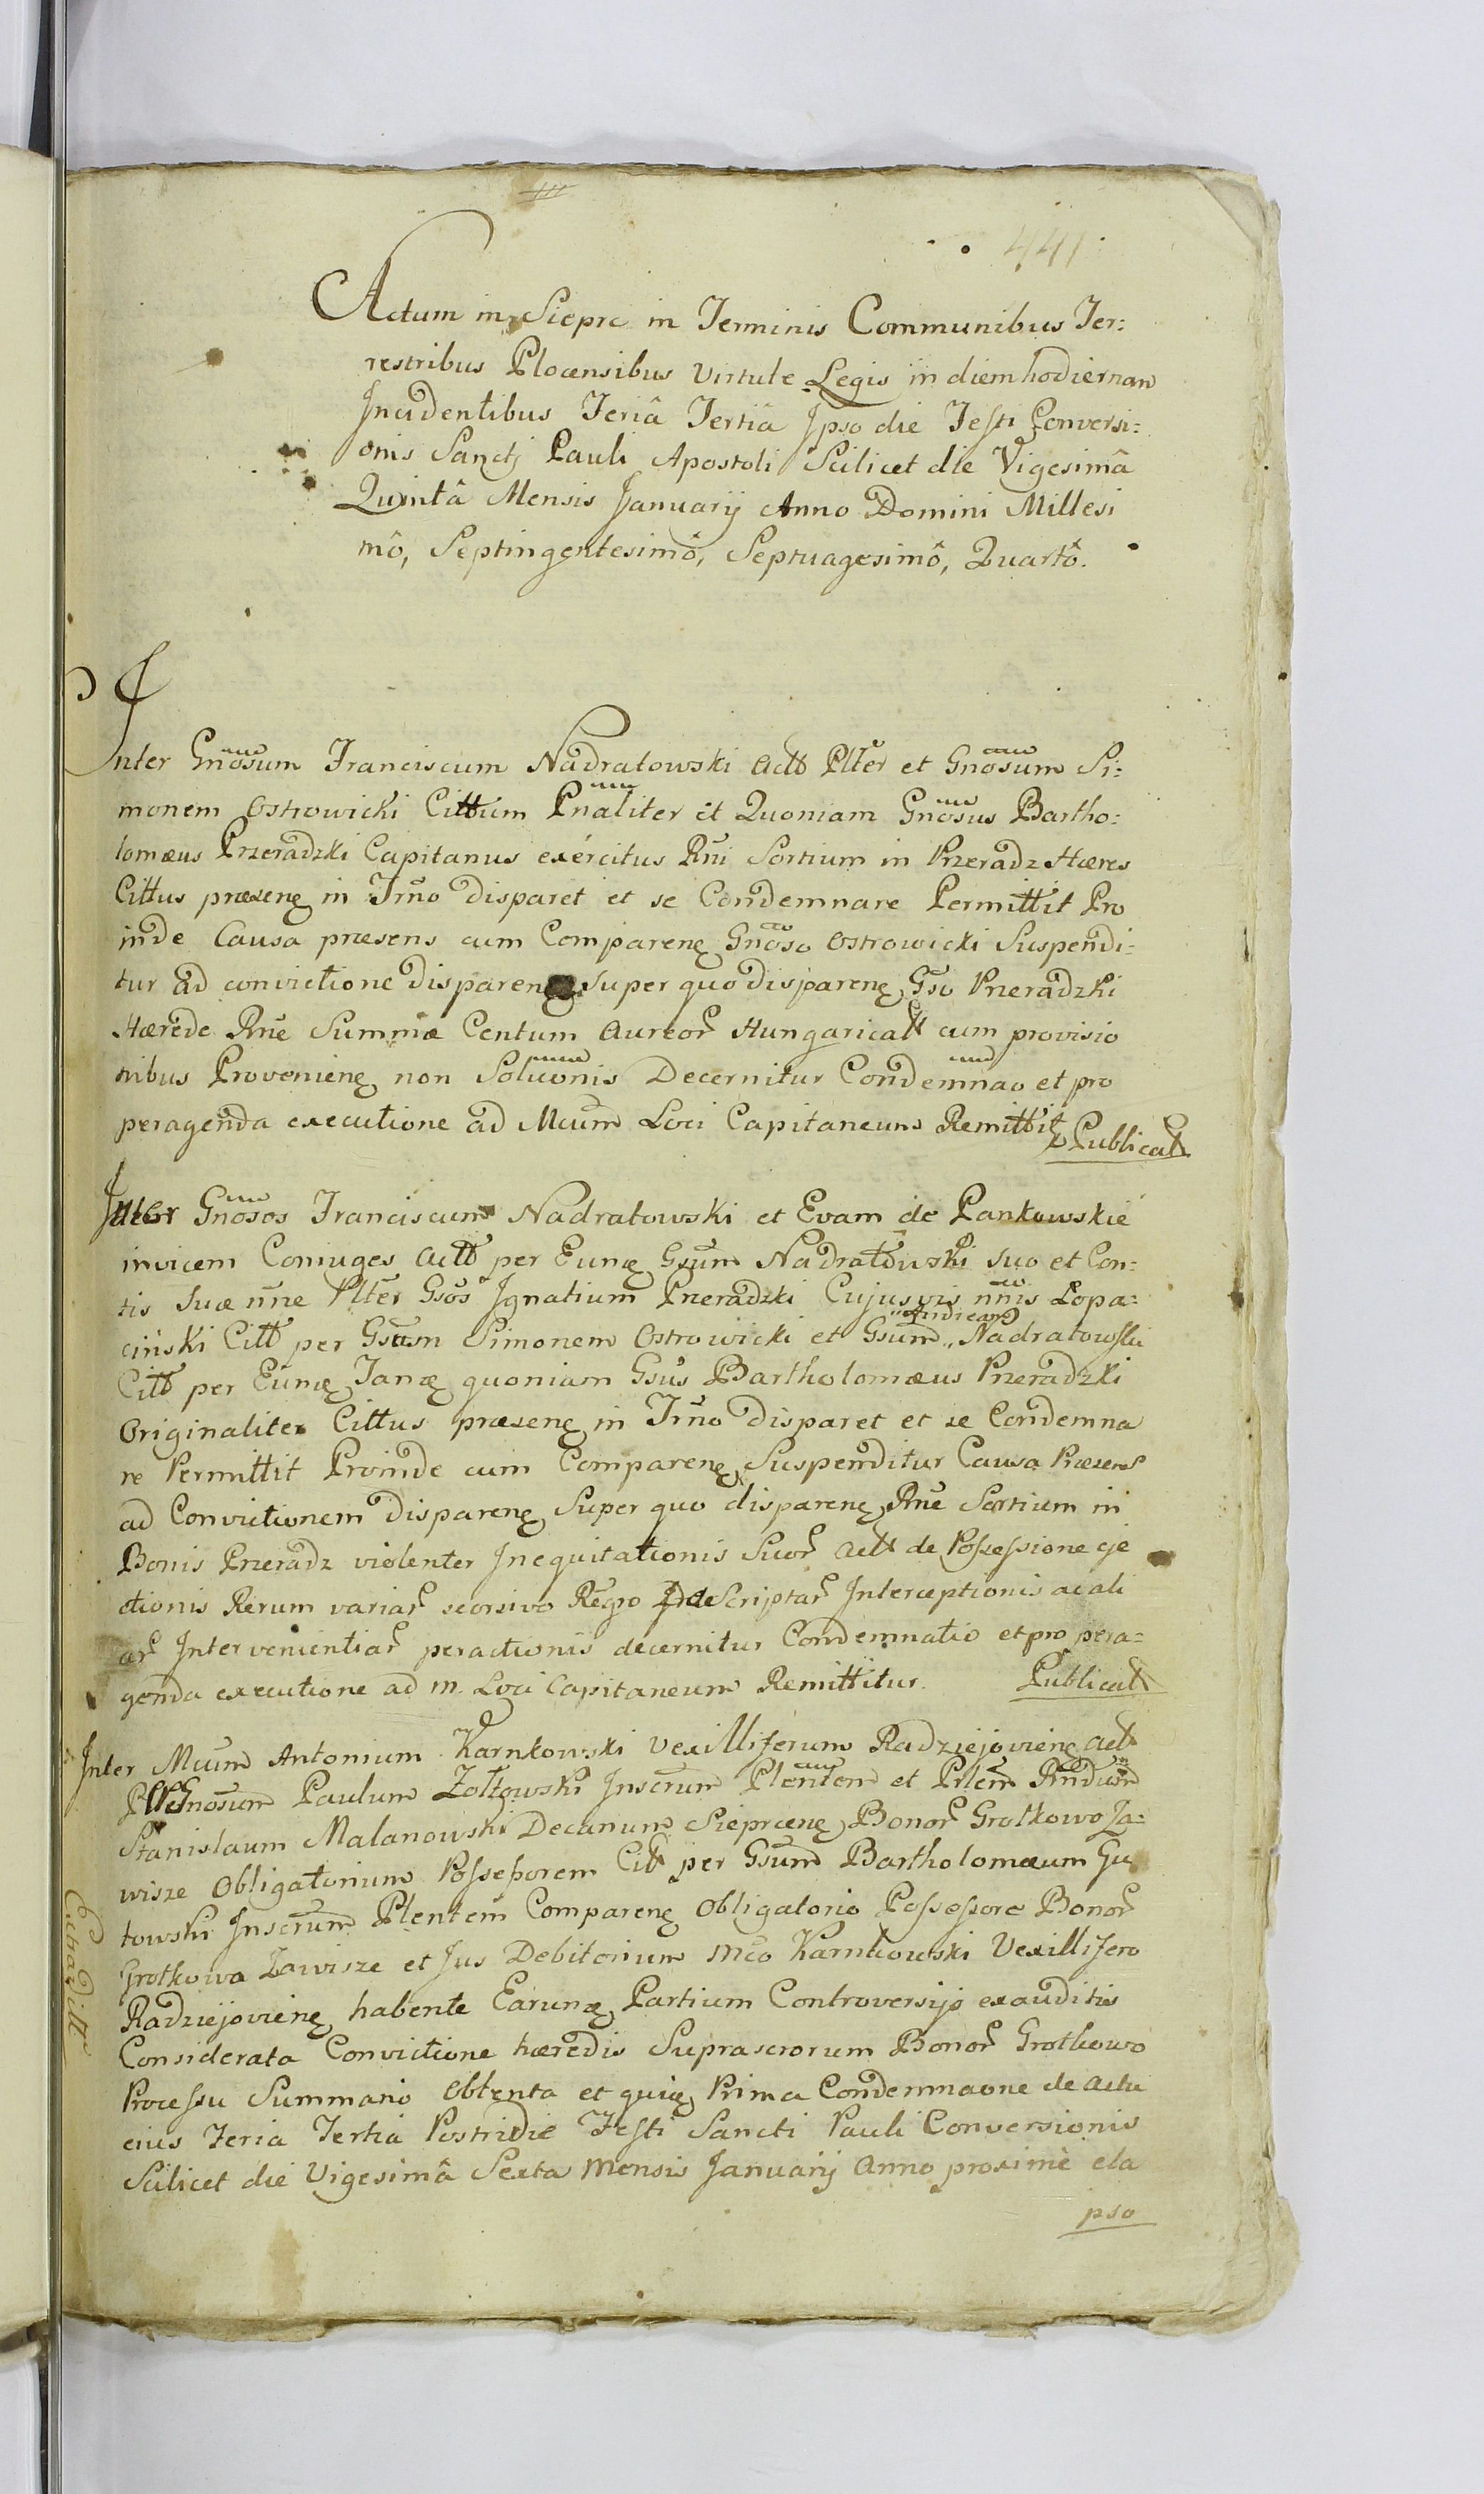 441
Actum in Sieprc in Terminis Communibus Ter:
restribus Plocensibus virtute Legis in diem hodiernam
Incidentibus Feriâ Tertiâ Ipso die Festi Conversi:
onis Sanctj Pauli Apostoli Scilicet die Vigesimâ
Quintâ Mensis Januarij Anno Domini Millesi
mô, Septingentesimô, Septuagesimô, Quartô.
Inter Gnosum Franciscum Nadratowski Actt Plter et Gnosum Si:
monem Ostrowicki Cittum Pnaliter et Quoniam Gnosus Bartho:
lomæus Przeradzki Capitanus exercitus Rni Sortium in Przeradz Hæres
Cittus præsenę in Trno disparet et se Condemnare Permittit Pro
inde Causa præsens cum Comparenę Gnoso Ostrowicki Suspendi:
tur ad convictione disparenę super quo disparenę Gso Przeradzki
Hærede Rne Summæ Centum Aureor Hungaricalt cum provisio
nibus Provenienę non Soluonis Decernitur Condemnao et pro
peragenda executione ad Mcum Loci Capitaneum Remittit Publicatt
Inter Gnosos Franciscum Nadratowski et Evam de Pankowskie
invicem Coniuges Actt per Eunę Gsum Nadratowski suo et Con:
tis suæ nne Plter Gsos Ignatium Przeradzki Cujusvis nnis Lopa:
ciński Citt per Gsum Simonem Ostrowicki et Gsum Nadratowski
Citt per Eunę Tanę quoniam Gsus Bartholomæus Przeradzki
Originaliter Cittus præsenę in Trno disparet et se Condemna
re Permittit Proinde cum Comparenę Suspenditur Causa Præsens
ad Convictionem disparenę Super quo disparenę Rne Sortium in
Bonis Przeradz violenter Inequitationis Suor Actt de Possessione eje
ctionis Rerum variar seorsivo Regro Descriptar Interceptionis ac ali
ar Intervenientiar peractionis decernitur Condemnatio et pro pera=
genda executione ad M. Loci Capitaneum Remittitur. Publicatt
Inter Mcum Antonium Karnkowski Vexilliferum Radziejovienę Actt
Plt Gnosum Paulum Zołtowski Inscrum Plentem et Prlem Rndum
Stanislaum Malanowski Decanum Sieprcenę Bonor Grotkowo Za=
wisze Obligatorium Possessorem Citt per Gsum Bartholomæum Gu
towski Inscrum Plentem Comparenę Obligatorio Possessore Bonor
Grotkowa Zawisze et Jus Debitorium Mco Karnkowski Vexillifero
Radziejovienę habente Earunę Partium Controversijs exauditis
Considerata Convictione hæredis Suprascrorum Bonor Grotkowo
Processu Summario Obtenta et quię Prima Condemnaone de Actu
eius Feria Tertia Postridie Festi Sancti Pauli Conversionis
Scilicet die Vigesimâ Sexta Mensis Januarij Anno proxime ela
pso